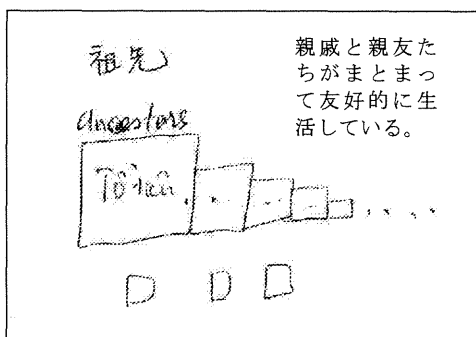 祖先
ancestors
Tổ tiên
親戚と親友た
ちがまとまっ
て友好的に生
活している。